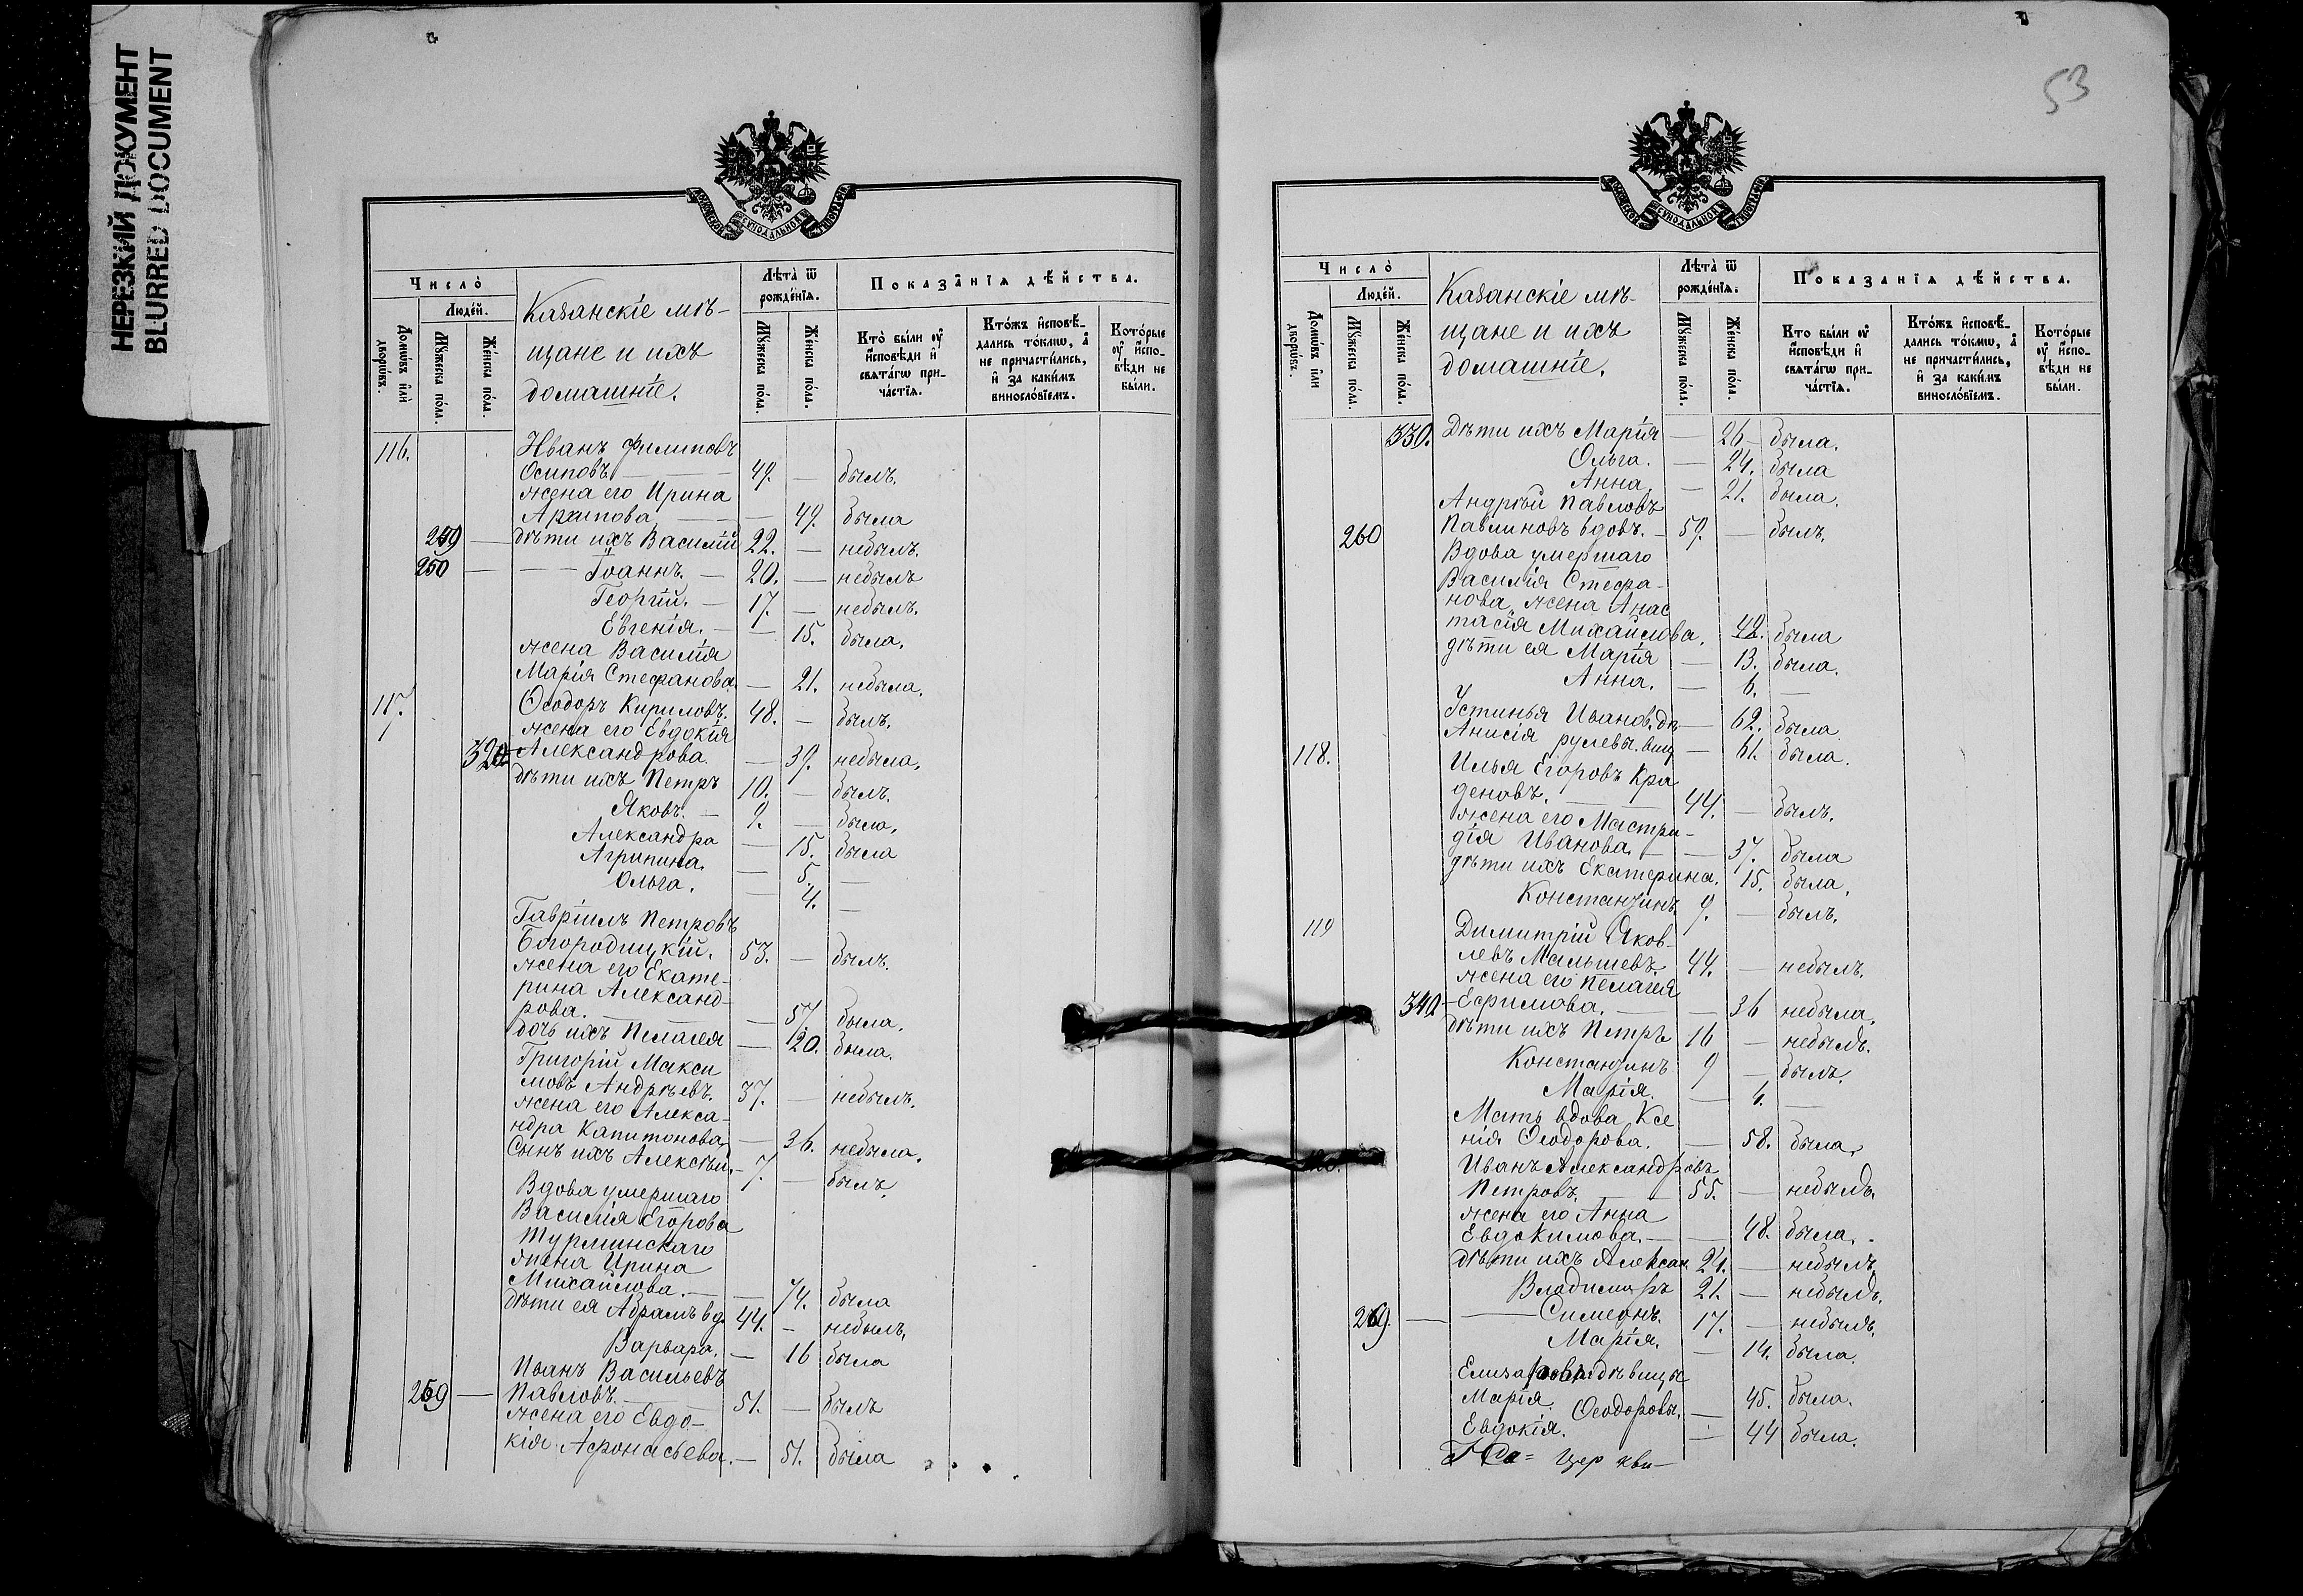 НЕРЕЗКИЙ ДОКУМЕНТ
BLURRED DOCUMENT
МОСКОВСКОЙ СѴНОДАЛЬНОЙ ТИПОГРАФІИ
Число̀
Люде́й.
Домѡ́въ и҆лѝ дворѡ́въ.
Мꙋ́жеска по́ла.
Же́нска по́ла.
Казанскіе мѣ-
щане и ихъ
домашніе.
Лѣта̀ ѿ рожде́нїѧ.
Мꙋ́жеска по́ла.
Же́нска по́ла.
Показа́нїѧ дѣ́йства.
Кто̀ бы́ли ᲂу҆ и҆сповѣди и҆ свѧта́гѡ при-ча́стїѧ.
Кто́жъ и҆сповѣ́-дались то́кмѡ, а҆ не причасти́лись, и҆ за каки́мъ винослóвїемъ.
Кото́рые ᲂу҆ и҆спо-вѣди не бы́ли.
116. Иванъ Филиповъ
Осиповъ. — 49. — былъ.
жена его Ирина
Архипова — 49. была
249 — дѣти ихъ Василій 22. — небылъ.
250 — Іоаннъ. — 20. — небылъ
Георгій. — 17. — небылъ.
Евгенія. — 15. была.
жена Василія
Марія Стефанова. — 21. небыла.
117. Ѳеодоръ Кириловъ. 48. — былъ.
жена его Евдокія
320 Александрова. — 39. небыла.
дѣти ихъ Петръ 10. — былъ.
Яковъ. — 9. — была.
Александра — 15. была
Агрипина. — 5. —
Ольга. — 4. —
Гавріилъ Петровъ
Богородицкій. 53. — былъ.
жена его Екате-
рина Александ-
рова. — 57 была.
дочь ихъ Пелагея — 20. была.
Григорій Макси
мовъ Андреевъ. 37. — небылъ.
жена его Алекса-
ндра Капитонова — 36. небыла.
Сынъ ихъ Алексѣй. — 7. — былъ
Вдова умершаго
Василія Егорова
Турминскаго
жена Ирина
Михайлова. — 74. была
дѣти ея Абрамъ вд. 44. — небылъ.
Варвара. — 16 была
Иванъ Васильевъ
259 — Павловъ. — 51. — былъ
жена его Евдо-
кія Афонасьева. — 51. была
53
МОСКОВСКОЙ СѴНОДАЛЬНОЙ ТИПОГРАФІИ
Число̀
Люде́й.
Домѡ́въ и҆лѝ дворѡ́въ.
Мꙋ́жеска по́ла.
Же́нска по́ла.
Казанскіе мѣ-
щане и ихъ
домашніе.
Лѣта̀ ѿ рожде́нїѧ.
Мꙋ́жеска по́ла.
Же́нска по́ла.
Показа́нїѧ дѣ́йства.
Кто бы́ли ᲂу҆ и҆сповѣди и҆ свѧта́гѡ при-ча́стїѧ.
Кто́жъ и҆сповѣ́-дались то́кмѡ, а҆ не причасти́лись, и҆ за каки́мъ винослóвїемъ.
Кото́рые ᲂу҆ и҆спо-вѣди не бы́ли.
330. Дѣти ихъ Марія — 26 — была.
Ольга. — 24. была
Анна. — 21. была.
Андрей Павловъ
260 Павлиновъ вдовъ. — 59. — былъ.
Вдова умершаго
Василія Стефа-
нова, жена Анас
тасія Михайлова. 42. была
дѣти ея Марія — 13. была.
Анна. — 6. —
Устинья Иванов. дѣ — 62. была
Анисія рулевы. виц — 61. была.
118. Илья Егоровъ Кра
деновъ. — 44. — былъ.
жена его Мастри-
дія Иванова. — 37. была
дѣти ихъ Екатерина. 15. была.
Константинъ. 9. — былъ.
119 Димитрій Яков-
левъ Малышевъ. 44. — небылъ.
жена его Пелагея
340 Ефимова. — 36 небыла.
дѣти ихъ Петръ 16 — небылъ.
Константинъ 9 — былъ.
Марія. — 6. —
Мать вдова Ксе
нія Ѳеодорова. — 58. была.
120. Иванъ Александровъ
Петровъ. — 55. — небылъ.
жена его Анна
Евдокимова. — 48. была.
дѣти ихъ Алексан. 24. — небылъ
Владимиръ 21. — небылъ.
269. — Симеонъ. 17. — небылъ.
Марія. — 14. была.
дѣвицы
Марія. Ѳеодоровы. — 45. была.
Евдокія. — 44 была.